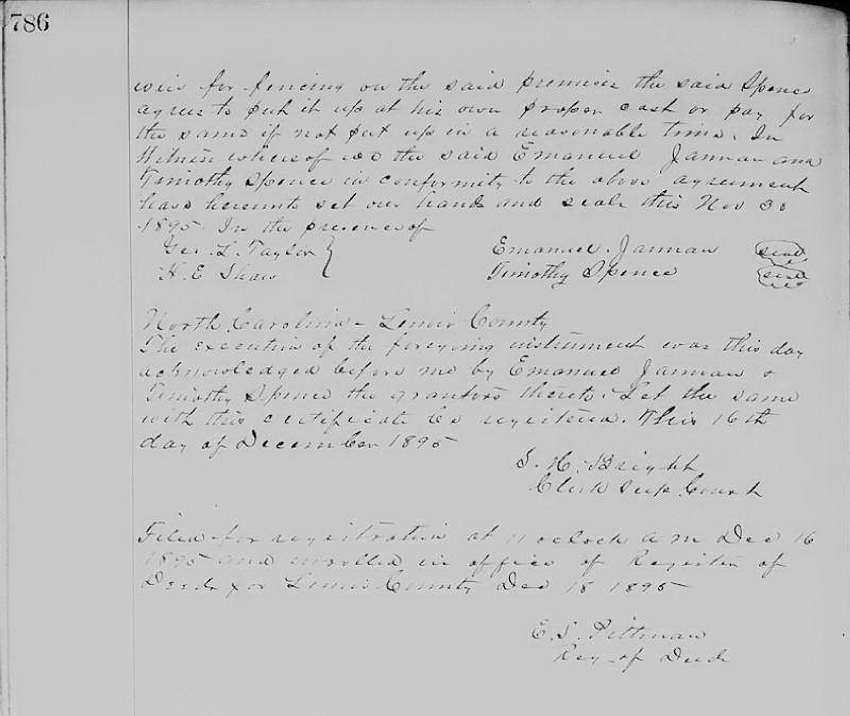 786
wire for fencing on the said premises the said Spence
agrees to put it up at his own proper cost or pay for
the same if not put up in a reasonable time. In
Witness whereof we the said Emanuel Jarman and
Timothy Spence in conformity to the above agreement
have hereunto set our hands and seals this Nov 30
1895 In the presence of
Geo. L. Taylor } Emanuel Jarman (seal)
H. E. Shaw Timothy Spence (seal)
North Carolina - Lenoir County
The execution of the foregoing instrument was this day
acknowledged before me by Emanuel Jarman &
Timothy Spence the grantors thereto. Let the same
with this certificate be registered. This 16th
day of December 1895
Bright
Clerk Sup. Court
Filed for registration at 11 oclock a m Dec 16
1895 and enrolled in office of Register of
Deeds for Lenoir County Dec 18 1895
E. S. Pittman
Reg of Deeds